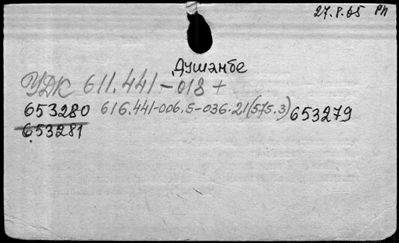 27.8.65 Рн
Душанбе
УДК 611.441-018 +
653280 616.441-006.5-036.21(575.3) 653279
653281